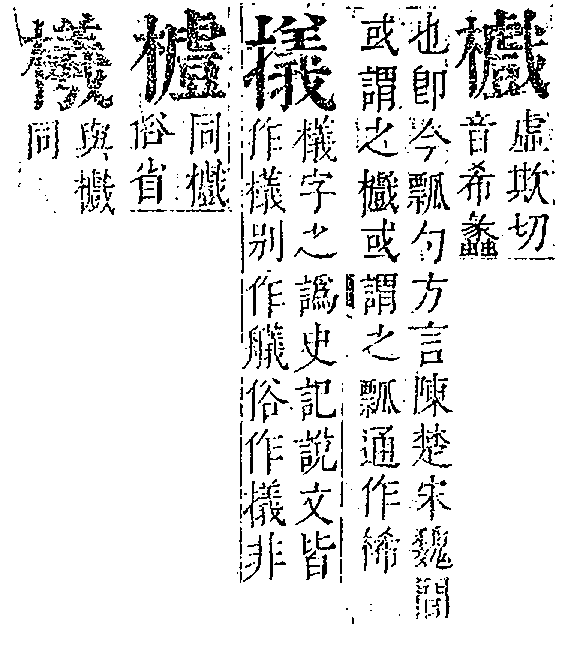 㰕
虛欺切
音希蠡
也即今瓢勺方言陳楚宋魏間
或謂之㰕或謂之瓢通作
㩘
檥字之譌史記說文皆
作檥別作艤俗作㩘非
同㰕
俗省
與㰕
同